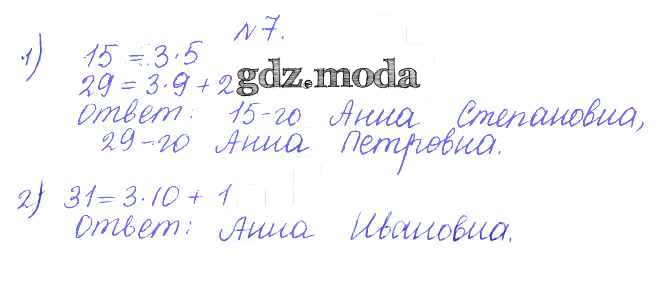 №7.
1) 15 = 3·5
29 = 3·9 + 2
gdz.moda
Ответ: 15-го Анна Степановна,
29-го Анна Петровна.
2) 31 = 3·10 + 1
Ответ: Анна Ивановна.